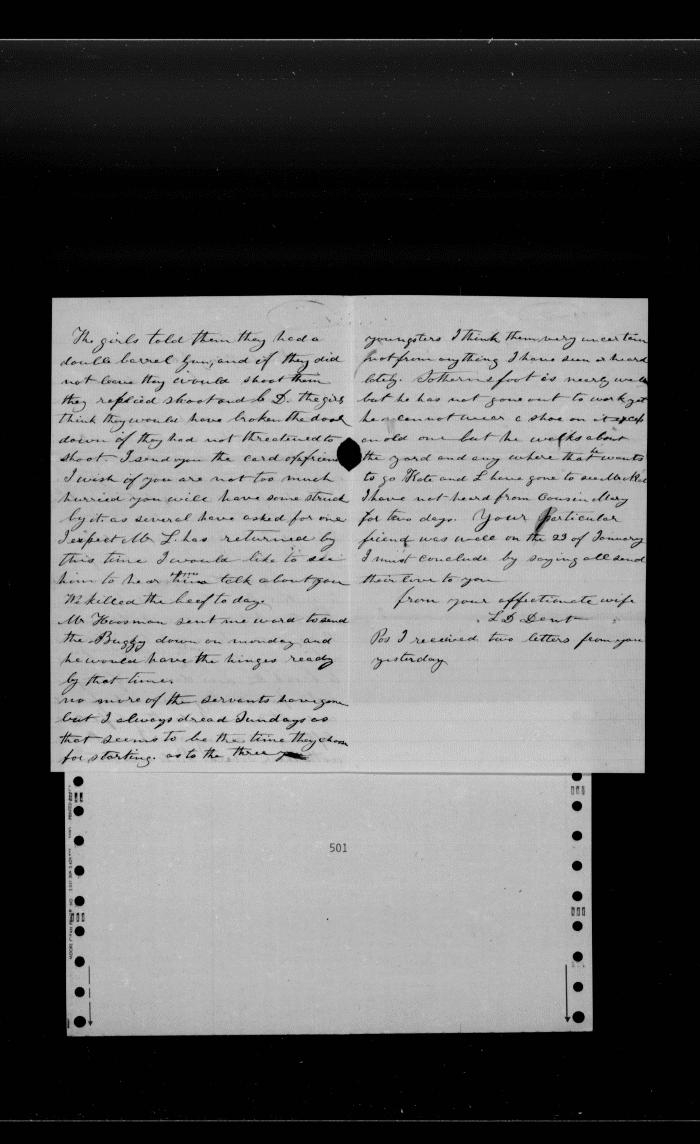 The girls told them they had a
double barrel gun, and if they did
not leave they would shoot them
they replied shoot and be D. the girls
think they would have broken the door
down if they had not threatened to
shoot. I send you the card of friend
I wish if you are not too much
hurried you will have some struck
by it. as several have asked for one
I expect Mr L. has returned by
this time I would like to see
him to hear him talk about you
We killed the beef to day
Mr Hoosman sent me word to send
the Buggy down on monday and
he would have the hinges ready
by that time.
no more of the servants have gone
but I always dread Sundays as
that seems to be the time they chose
for starting. as to the three
youngsters I think them very uncertain
not from anything I have seen or heard
lately. Sotherns foot is nearly well
but he has not gone out to work yet
he cannot wear a shoe on it except
an old one but he walks about
the yard and any where that he wants
to go Kate and L have gone to see
I have not heard from Cousin Mary
for two days. Your particular
friend was well on the 23 of January
I must conclude by saying all send
their love to you
from your affectionate wife
L D Dent
Pos I received two letters from you
yesterday
501